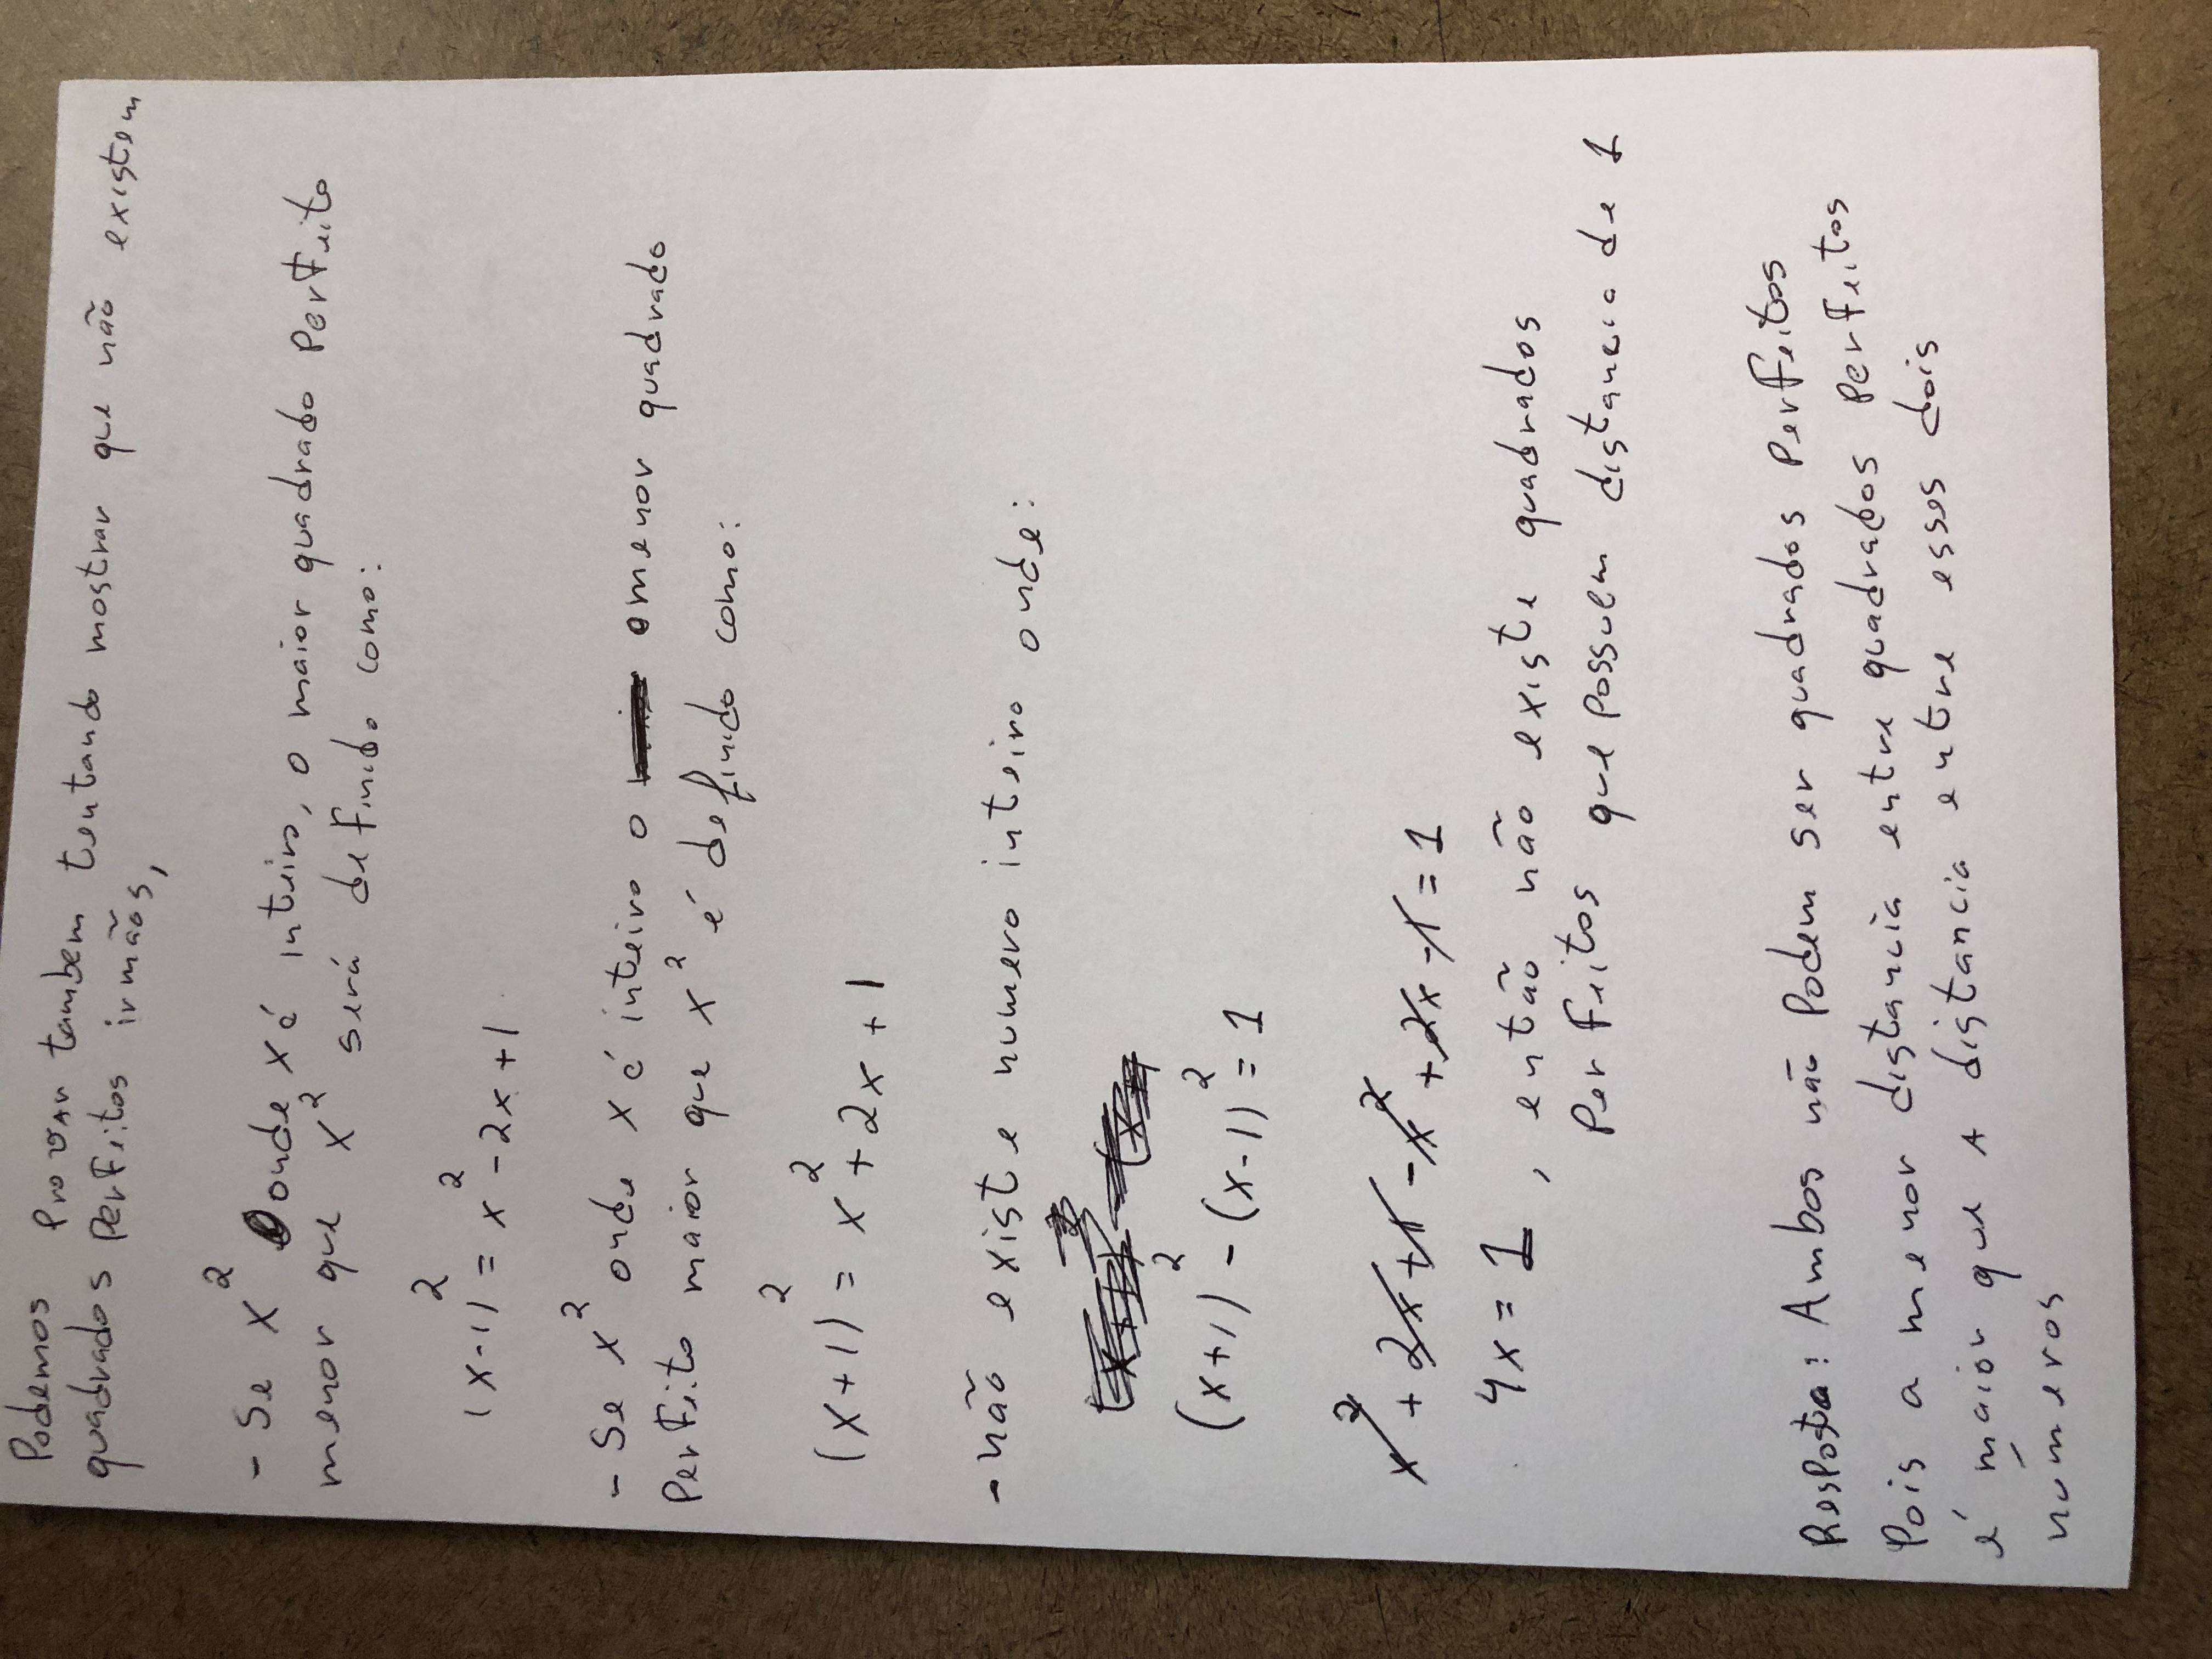 Podemos Provar tambem tentando mostrar que não existem
quadrados Perfeitos irmãos,
- Se x² onde x é inteiro, o maior quadrado Perfeito
menor que x² será definido como:
(x-1)² = x² - 2x + 1
- Se x² onde x é inteiro o o menor quadrado
Perfeito maior que x² é definido como:
(x+1)² = x² + 2x + 1
- não existe numero inteiro onde:
(x+1)² - (x-1)² = 1
x² + 2x + 1 - x² + 2x - 1 = 1
4x = 1 , então não existe quadrados
Perfeitos que possuem distancia de 1
Resposta: Ambos não Podem ser quadrados Perfeitos
Pois a menor distancia entre quadrados Perfeitos
é maior que A distancia entre esses dois
números